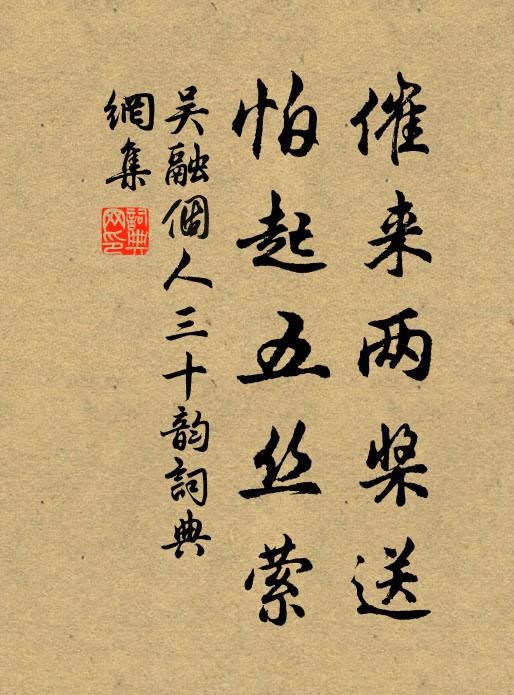 催来两桨送
怕起五丝萦
吴融個人三十韵詞典
網集
詞典
网印